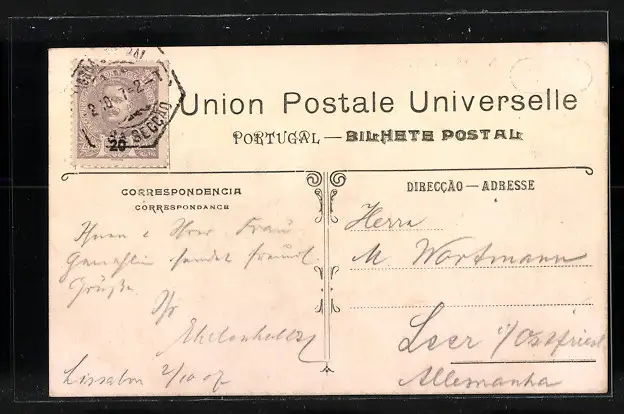 Union Postale Universelle
PORTUGAL — BILHETE POSTAL
20
SECÇÃO
CORRESPONDENCIA
CORRESPONDANCE
Ihnen & Ihrer Frau
Gemahlin sendet freundl.
Grüße
Ihr
Lissabon 2/10 07
DIRECÇÃO — ADRESSE
Herrn
M Wortmann
Leer i/Ostfriesl
Allemanha